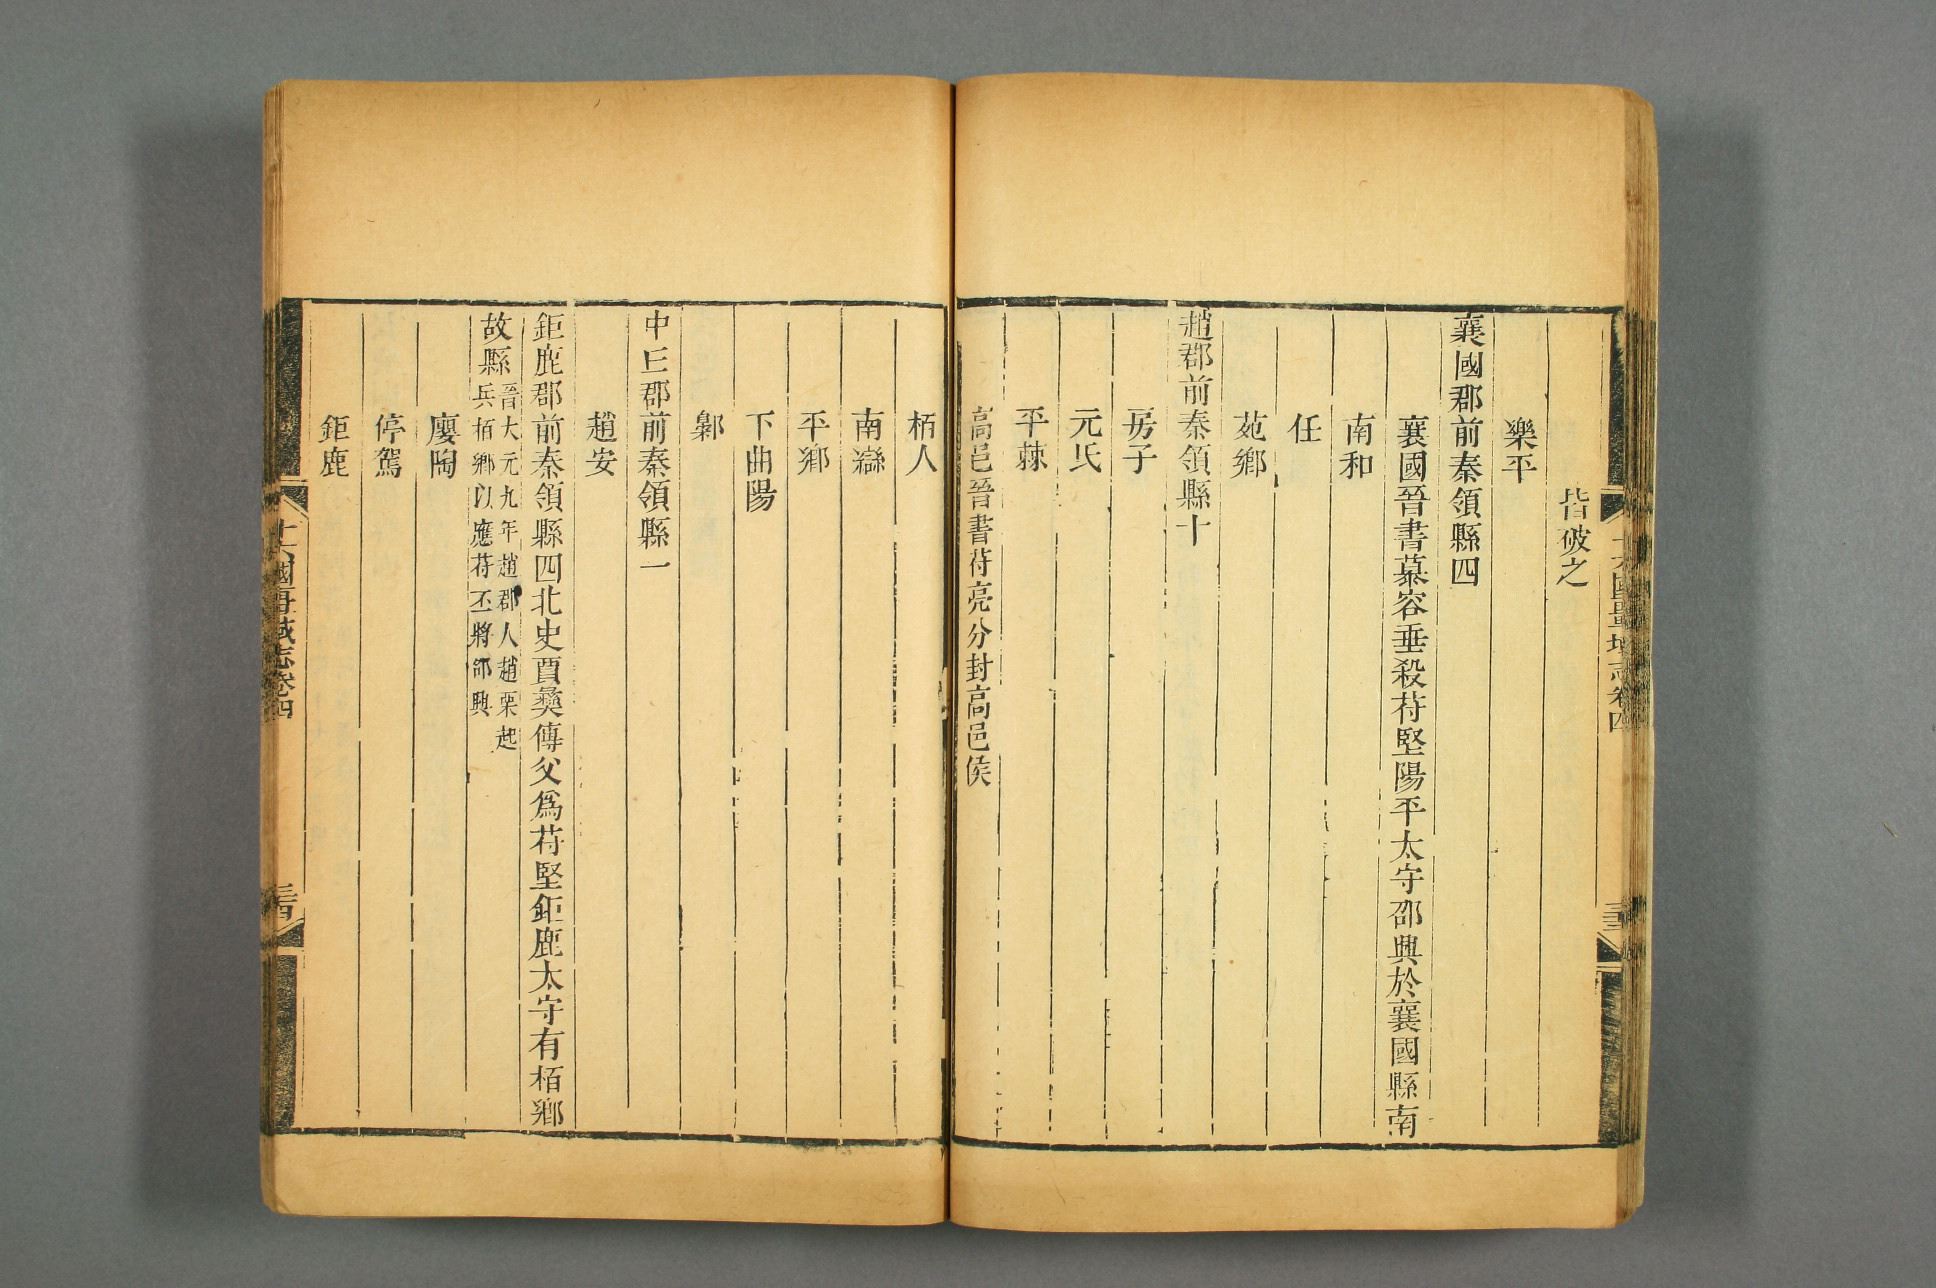 皆破之
樂平
襄國郡前秦領縣四
襄國晉書慕容垂殺苻堅陽平太守邵興於襄國縣南
南和
任
苑鄉
趙郡前秦領縣十
房子
元氏
平棘
高邑晉書苻亮分封高邑侯
栢人
南䜌
平鄉
下曲陽
鄡
中丘郡前秦領縣一
趙安
鉅鹿郡前秦領縣四北史賈彝傳父爲苻堅鉅鹿太守有栢鄉
故縣晉太元九年趙郡人趙栗起
兵栢鄉以應苻丕將邵興
廮陶
停駕
鉅鹿
十六國疆域志卷四